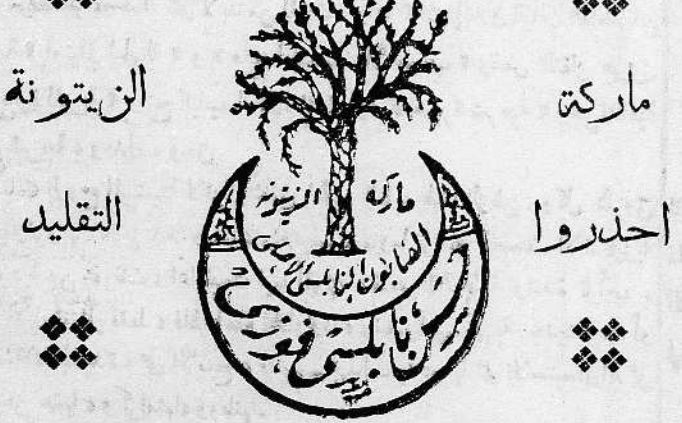 ماركة الزيتونة
احذروا التقليد
ماركة الزيتونه
الصابون النابلسي
نابلسي فوزي